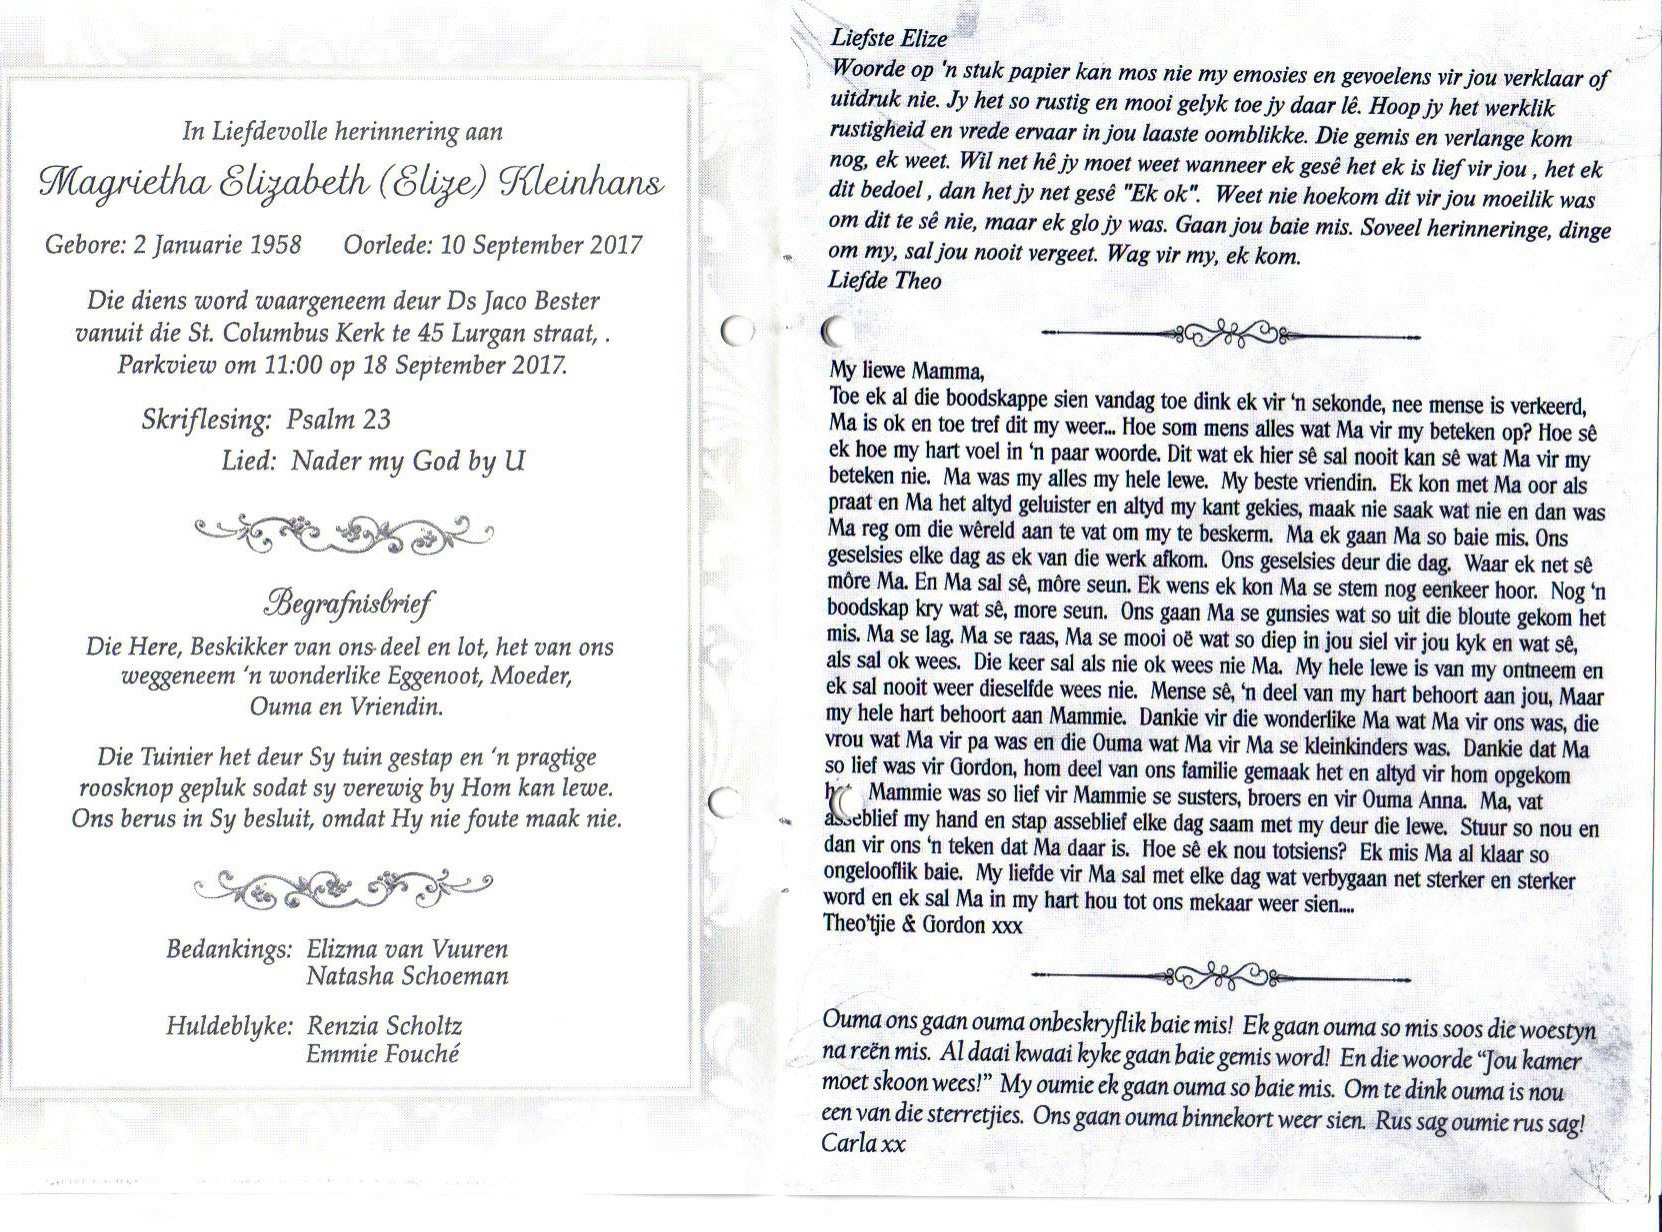 In Liefdevolle herinnering aan
Magrietha Elizabeth (Elize) Kleinhans
Gebore: 2 Januarie 1958 Oorlede: 10 September 2017
Die diens word waargeneem deur Ds Jaco Bester
vanuit die St. Columbus Kerk te 45 Lurgan straat, .
Parkview om 11:00 op 18 September 2017.
Skriflesing: Psalm 23
Lied: Nader my God by U
Begrafnisbrief
Die Here, Beskikker van ons deel en lot, het van ons
weggeneem ‘n wonderlike Eggenoot, Moeder,
Ouma en Vriendin.
Die Tuinier het deur Sy tuin gestap en ‘n pragtige
roosknop gepluk sodat sy verewig by Hom kan lewe.
Ons berus in Sy besluit, omdat Hy nie foute maak nie.
Bedankings: Elizma van Vuuren
Natasha Schoeman
Huldeblyke: Renzia Scholtz
Emmie Fouché
Liefste Elize
Woorde op 'n stuk papier kan mos nie my emosies en gevoelens vir jou verklaar of
uitdruk nie. Jy het so rustig en mooi gelyk toe jy daar lê. Hoop jy het werklik
rustigheid en vrede ervaar in jou laaste oomblikke. Die gemis en verlange kom
nog, ek weet. Wil net hê jy moet weet wanneer ek gesê het ek is lief vir jou , het ek
dit bedoel , dan het jy net gesê "Ek ok". Weet nie hoekom dit vir jou moeilik was
om dit te sê nie, maar ek glo jy was. Gaan jou baie mis. Soveel herinneringe, dinge
om my, sal jou nooit vergeet. Wag vir my, ek kom.
Liefde Theo
My liewe Mamma,
Toe ek al die boodskappe sien vandag toe dink ek vir ‘n sekonde, nee mense is verkeerd,
Ma is ok en toe tref dit my weer... Hoe som mens alles wat Ma vir my beteken op? Hoe sê
ek hoe my hart voel in ‘n paar woorde. Dit wat ek hier sê sal nooit kan sê wat Ma vir my
beteken nie. Ma was my alles my hele lewe. My beste vriendin. Ek kon met Ma oor als
praat en Ma het altyd geluister en altyd my kant gekies, maak nie saak wat nie en dan was
Ma reg om die wêreld aan te vat om my te beskerm. Ma ek gaan Ma so baie mis. Ons
geselsies elke dag as ek van die werk afkom. Ons geselsies deur die dag. Waar ek net sê
môre Ma. En Ma sal sê, môre seun. Ek wens ek kon Ma se stem nog eenkeer hoor. Nog ‘n
boodskap kry wat sê, more seun. Ons gaan Ma se gunsies wat so uit die bloute gekom het
mis. Ma se lag. Ma se raas, Ma se mooi oë wat so diep in jou siel vir jou kyk en wat sê,
als sal ok wees. Die keer sal als nie ok wees nie Ma. My hele lewe is van my ontneem en
ek sal nooit weer dieselfde wees nie. Mense sê, ‘n deel van my hart behoort aan jou, Maar
my hele hart behoort aan Mammie. Dankie vir die wonderlike Ma wat Ma vir ons was, die
vrou wat Ma vir pa was en die Ouma wat Ma vir Ma se kleinkinders was. Dankie dat Ma
so lief was vir Gordon, hom deel van ons familie gemaak het en altyd vir hom opgekom
Mammie was so lief vir Mammie se susters, broers en vir Ouma Anna. Ma, vat
asseblief my hand en stap asseblief elke dag saam met my deur die lewe. Stuur so nou en
dan vir ons ‘n teken dat Ma daar is. Hoe sê ek nou totsiens? Ek mis Ma al klaar so
ongelooflik baie. My liefde vir Ma sal met elke dag wat verbygaan net sterker en sterker
word en ek sal Ma in my hart hou tot ons mekaar weer sien....
Theo’tjie & Gordon xxx
Ouma ons gaan ouma onbeskryflik baie mis! Ek gaan ouma so mis soos die woestyn
na reën mis. Al daai kwaai kyke gaan baie gemis word! En die woorde “Jou kamer
moet skoon wees!” My oumie ek gaan ouma so baie mis. Om te dink ouma is nou
een van die sterretjies. Ons gaan ouma binnekort weer sien. Rus sag oumie rus sag!
Carla xx